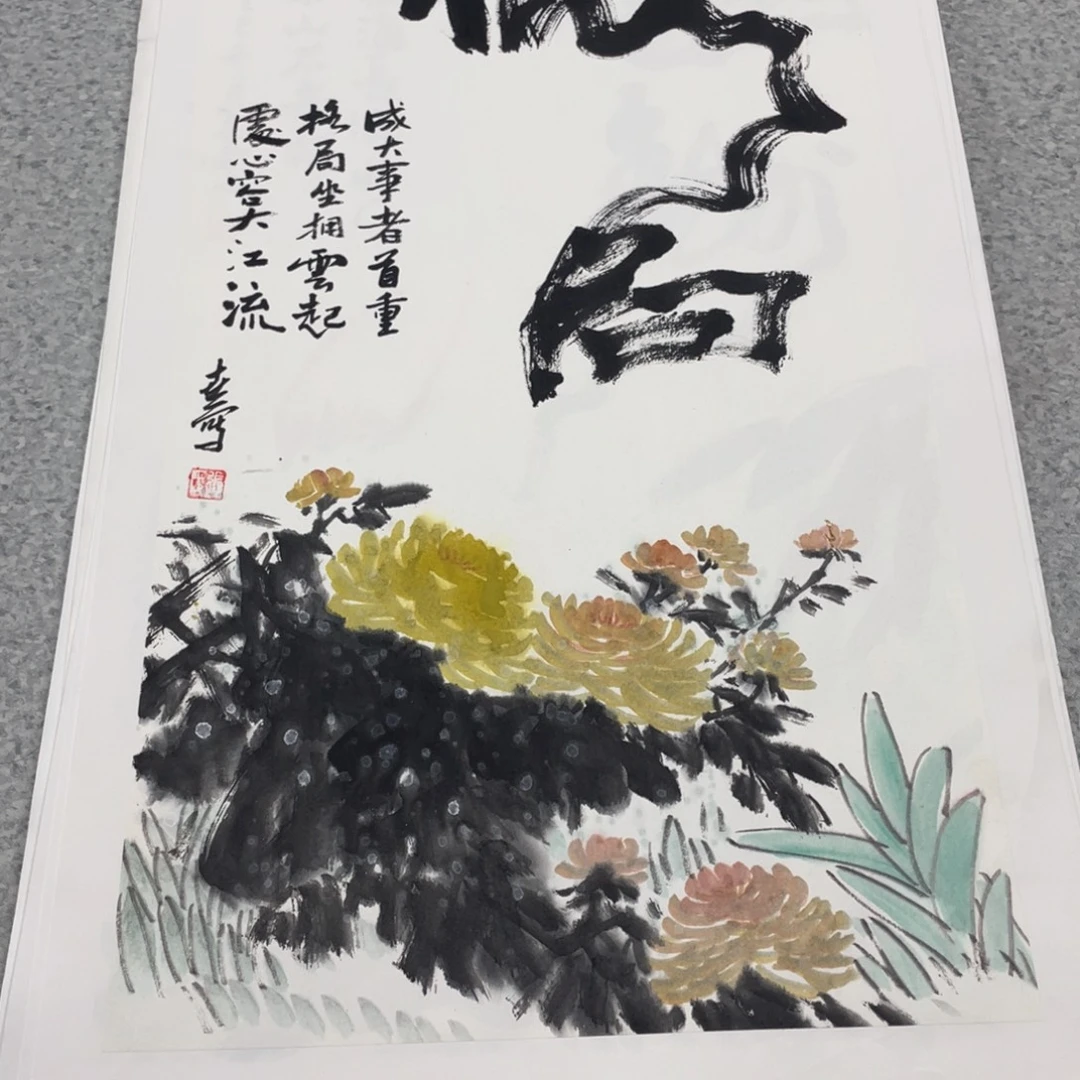 局
成大事者首重
格局坐拥雲起
處心容大江流